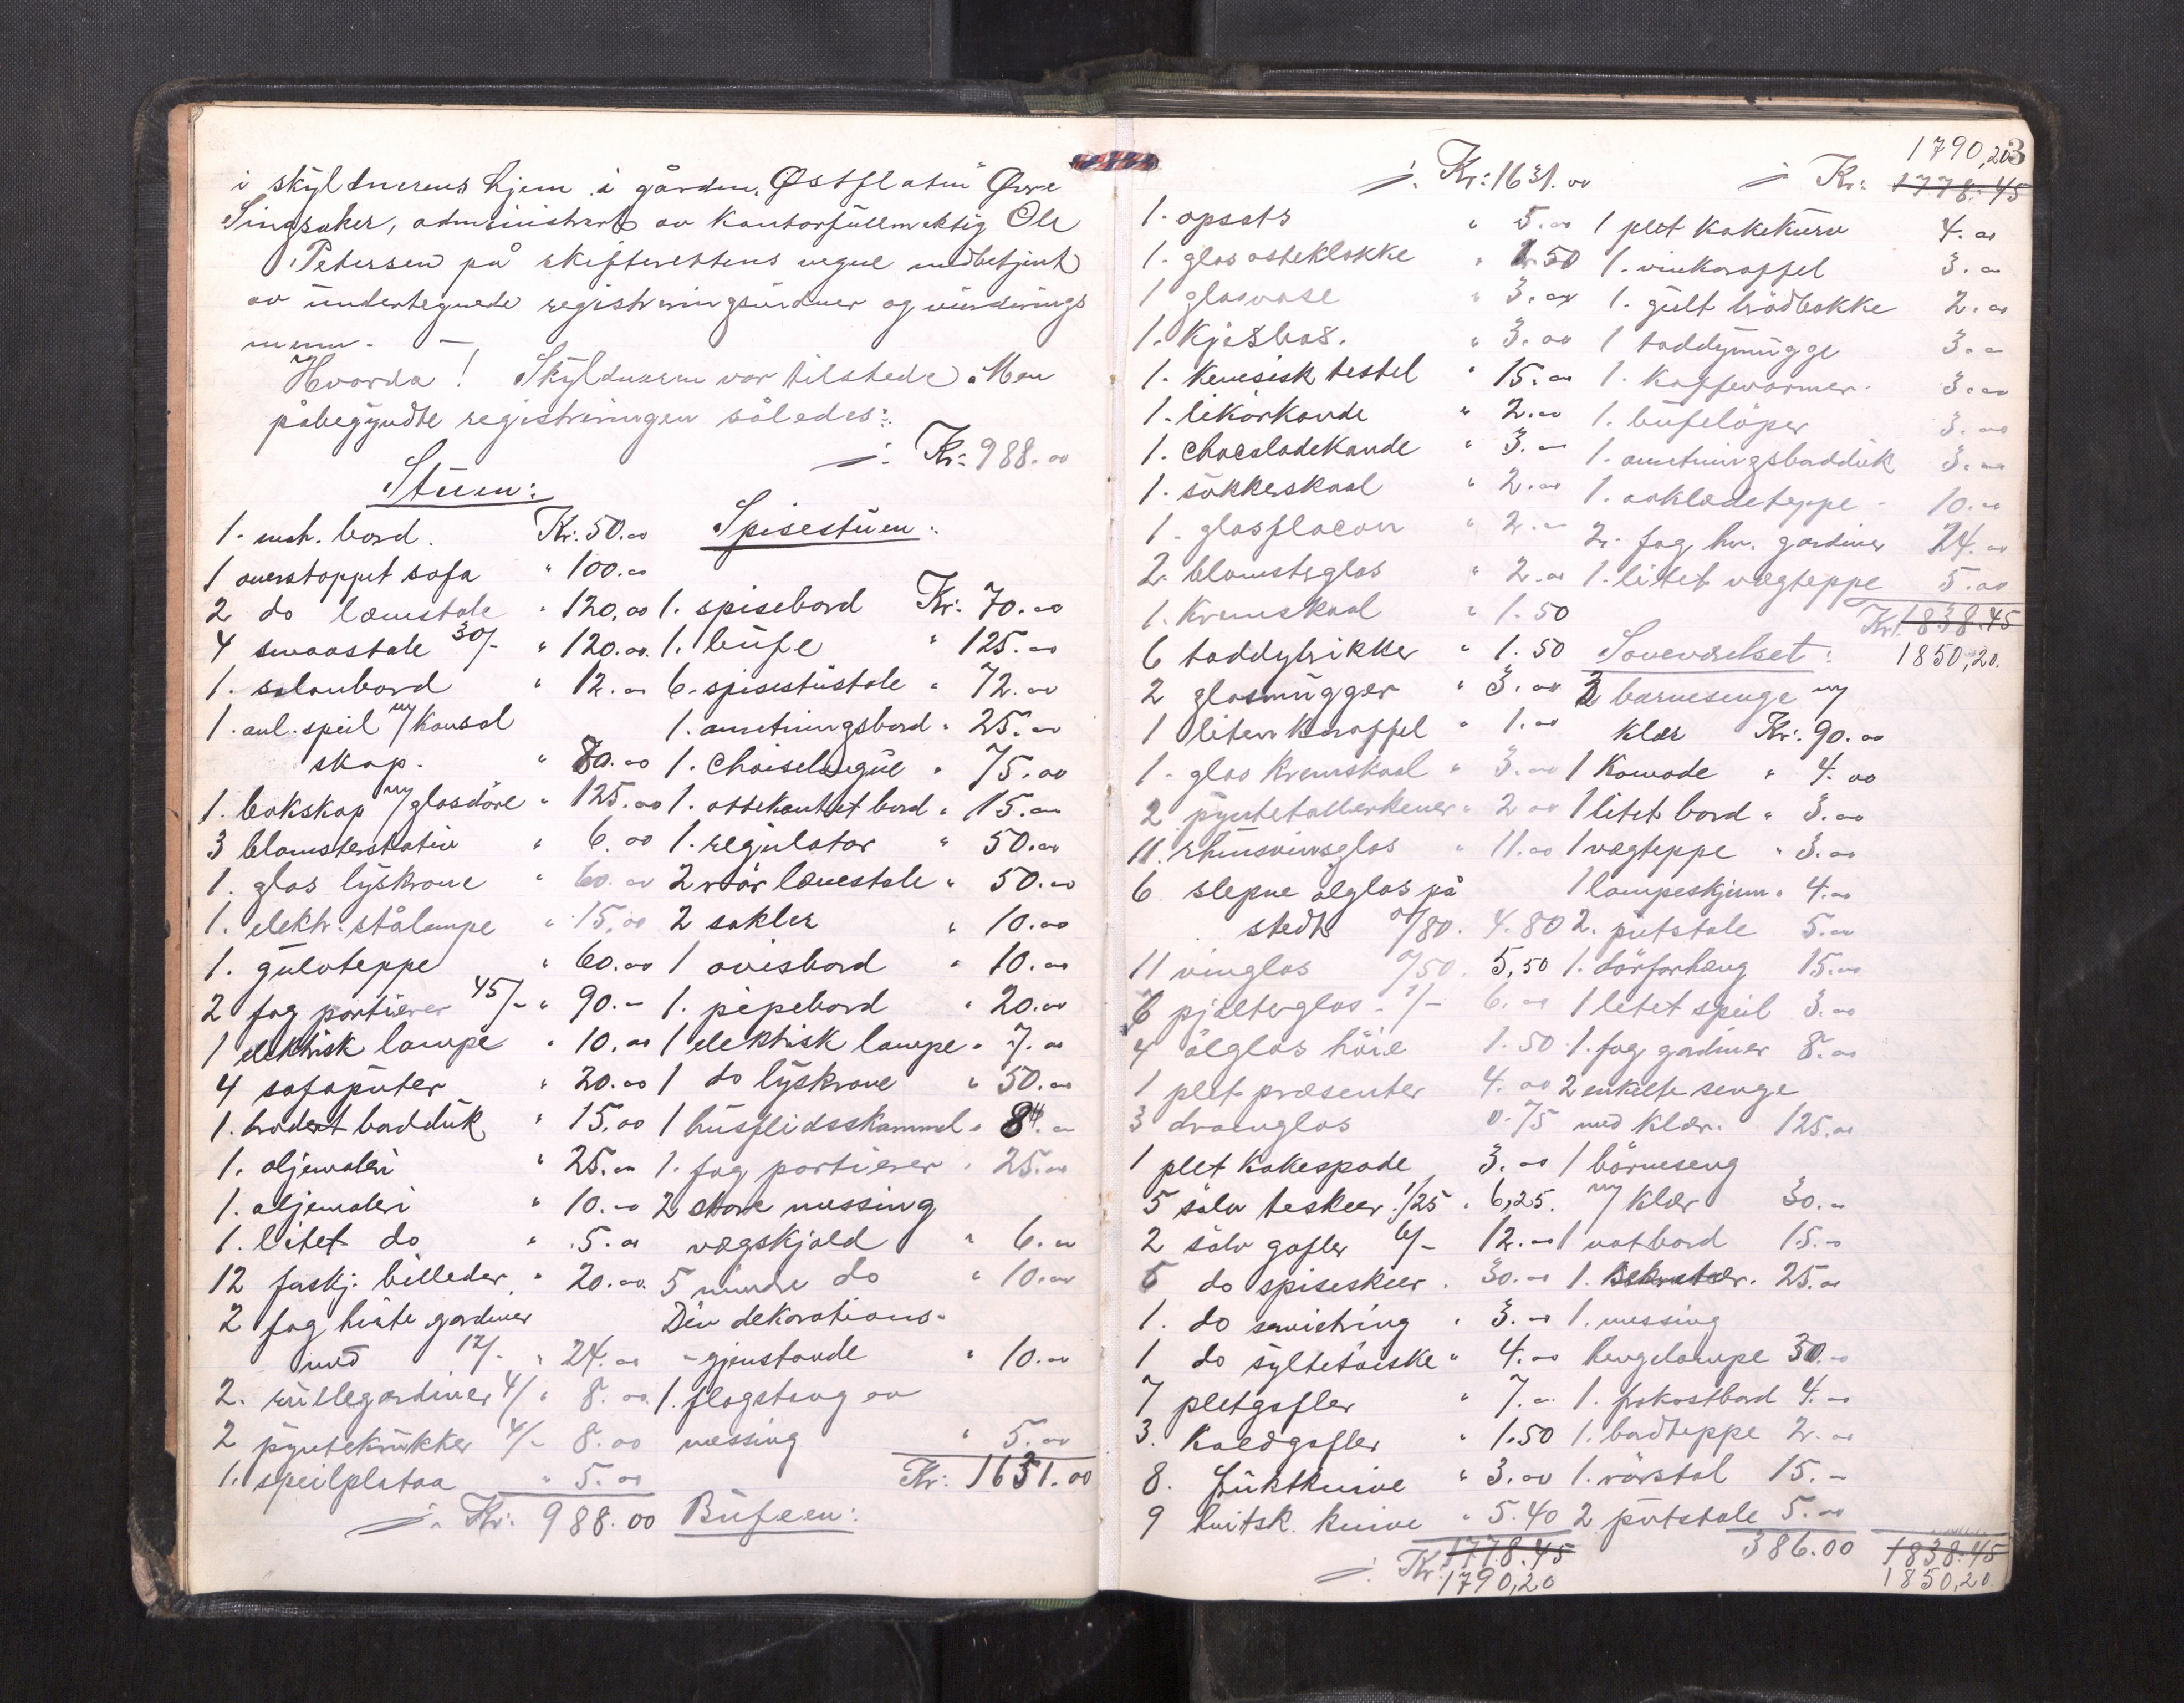 i skyldnerens hjem i gården "Østflaten" Øvre
Singsaker, administrert av kontorfullmektig Ole
Petersen på skifterettens vegne medbetjent
av undertegnede registreringsvidner og vurderings
menn. —
Hvorda! Skyldneren var tilstede. Man
påbegyndte registreringen således:
Stuen:
1. mah. bord. Kr. 50.00
1 overstoppet sofa " 100.00
2 do lænestole " 120,00
4 smaastole 30/- " 120.00
1. salonbord " 12.00
1. avl. speil m/ konsol
skap. " 80.00
1. bokskap m/ glasdöre " 125.00
3 blomsterstativ " 6.00
1. glas lyskrone " 60.00
1. elektr. stålampe " 15,00
1. gulvteppe " 60.00
2 fag portierer 45/- " 90.-
1 elektrisk lampe " 10.00
4 sofaputer " 20.00
1. brodert bordduk " 15,00
1. oljemaleri " 25.00
1. oljemaleri " 10.00
1. litet do " 5.00
12 forskj. billeder " 20.00
2 fag hvite gardiner
med 12/- " 24.00
2. rullegardiner 4/- " 8.00
2 pyntekrukker 4/- 8.00
1. speilplataa " 5.00
Kr. 988.00
Kr: 988.00
Spisestuen:
1. spisebord Kr. 70.00
1. bufe " 125.00
6. spisestustole " 72.00
1. anretningsbord " 25.00
1. Chaiselongue " 75.00
1. ottekantet bord " 15.00
1. regulator " 50.00
2 rör lænestole " 50.00
2 sokler " 10.00
1 avisbord " 10.00
1. pipebord " 20.00
1 elektrisk lampe " 7.00
1 do lyskrone " 50.00
1 husflidsskammel " 8.00
1. fag portierer " 25.00
2 store messing
vægskjold " 6.00
5 mindre do " 10.00
Div dekorations-
-gjenstande " 10.00
1. flagstang av
messing " 5.00
Kr: 1631.00
Bufeen:
Kr: 1631.00
1. opsats " 5.00
1. glas osteklokke " 1.50
1 glasvase " 3.00
1. kjeksbos. " 3.00
1. kinesisk testel " 15.00
1. likörkande " 2.00
1. chocoladekande " 3.00
1. sukkerskaal " 2.00
1. glasflacon " 2.00
2. blomsterglas " 2.00
1. kremskaal " 1.50
6 toddytrikker " 1.50
2 glasmugger " 3.00
1 liten karaffel " 1.00
1. glas kremskaal " 3.00
2 pyntetallerkener " 2.00
11. rhinsvinsglas " 11.00
6 slepne ølglas på
stedt 0/80. 4.80
11 vinglas 0/50. 5,50
6 pjolterglas 1/- 6.00
4 ölglas höie 1.50
1 plet præsenter 4.00
3 dramglas 0.75
1 plet kakespade 3.00
5 sölv teskeer 1/25 " 6,25.
2 sölv gafler 6/- 12.00
5 do spiseskeer . 30.00
1. do serviettring " 3.00
1 do syltetöiske " 4.00
7 pletgafler " 7.00
3. koldgafler " 1.50
8. fruktknive " 3.00
9 hvitsk. knive " 5.40
Kr. 1778.45
1790,20
3
1790,20
Kr: 1778.45
1 plet kakekurv 4.00
1. vinkaraffel 3.00
1. gult brödbakke 2.00
1 toddymugge 3.00
1. kaffevarmer. 3.00
1. bufelöper 3.00
1. anretningsbordduk 3.00
1. aaklædeteppe 10.00
2. fag hv. gardiner 24.00
1. litet vægteppe 5.00
Kr. 1838.45
1850,20.
Soveværelset:
2 barnesenge m/
klær Kr. 90.00
1 Komode " 4.00
1 litet bord " 3.00
1 vægteppe " 3.00
1 lampeskjerm " 4.00
2. putstole 5.00
1. dörforheng 15.00
1 litet speil 3.00
1. fag gardiner 8.00
2 enkelte senge
med klær. 125.00
1 börneseng
m/ klær 30.-
1 natbord 15.-
1. Sekretær. 25.00
1. messing
hengelampe 30.-
1. frokostbord 4.-
1. bordteppe 2.00
1. rörstol 15.-
2 putstole 5.00
386.00
1838.45
1850,20